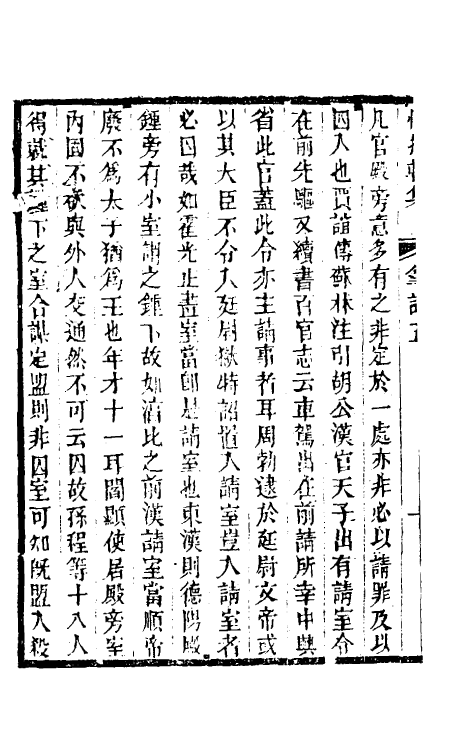 筆記五
凡宫殿旁意多有之非定於一處亦非必以請罪及以
囚人也賈誼傳蘇林注引胡公漢官天子出有請室令
在前先驅又續書百官志云車駕出在前請所幸中興
省此官蓋此令亦主請事者耳周勃逮於廷尉文帝或
以其大臣不令入廷尉獄特詔置入請室豈入請室者
必囚哉如霍光止畫室當卽是請室也東漢則德陽殿
鍾旁有小室謂之鍾下故如淳比之前漢請室當順帝
廢不爲太子猶爲王也年才十一耳閻顯使居殿旁室
內固不欲與外人交通然不可云囚故孫程等十八人
得就其鍾下之室合謀定盟則非囚室可知旣盟入殺